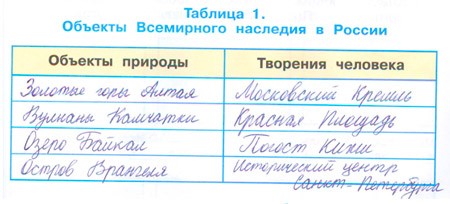 Таблица 1.
Объекты Всемирного наследия в России
Объекты природы Творения человека
Золотые горы Алтая Московский Кремль
Вулканы Камчатки Красная Площадь
Озеро Байкал Погост Кижи
Остров Врангеля Исторический центр
Санкт-Петербурга